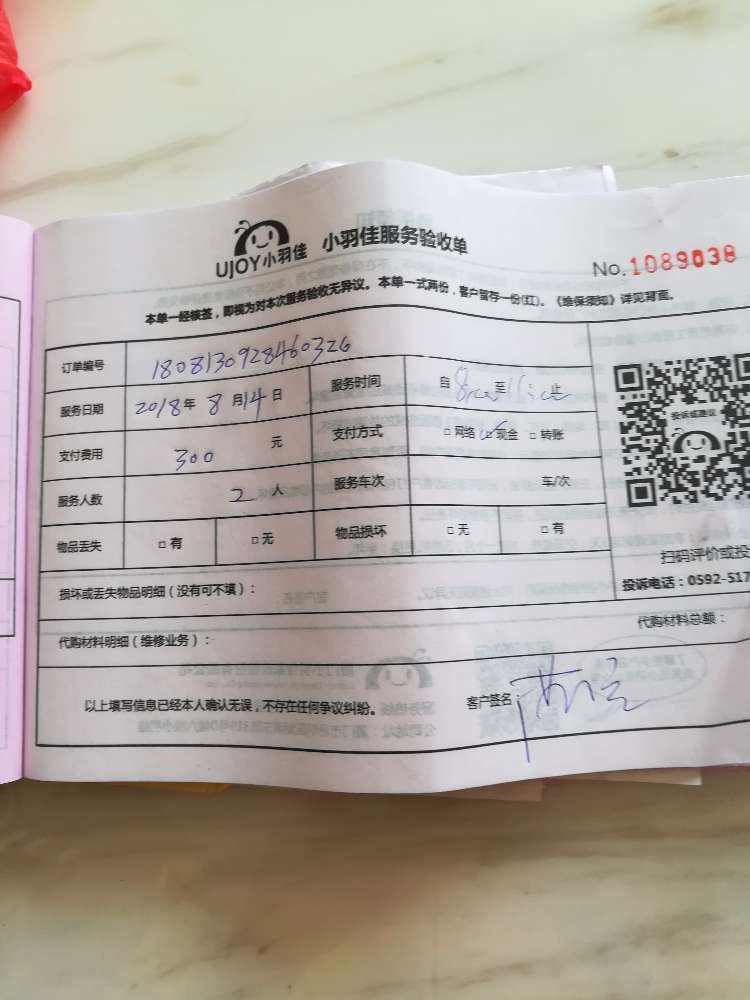 UJOY小羽佳 小羽佳服务验收单
No.1089038
本单一经核签，即视为对本次服务验收无异议。本单一式两份，客户留存一份(红)。《维保须知》详见背面。
订单编号 1808130928460326
服务日期 2018年8月14日 服务时间 自8:00至11:00止
支付费用 300元 支付方式 □网络 ☑现金 □转账
服务人数 2人 服务车次 车/次
物品丢失 □有 □无 物品损坏 □无 □有
投诉或建议
扫码评价或投
投诉电话：0592-517
损坏或丢失物品明细（没有可不填）：
代购材料明细（维修业务）： 代购材料总额：
以上填写信息已经本人确认无误，不存在任何争议纠纷。 客户签名